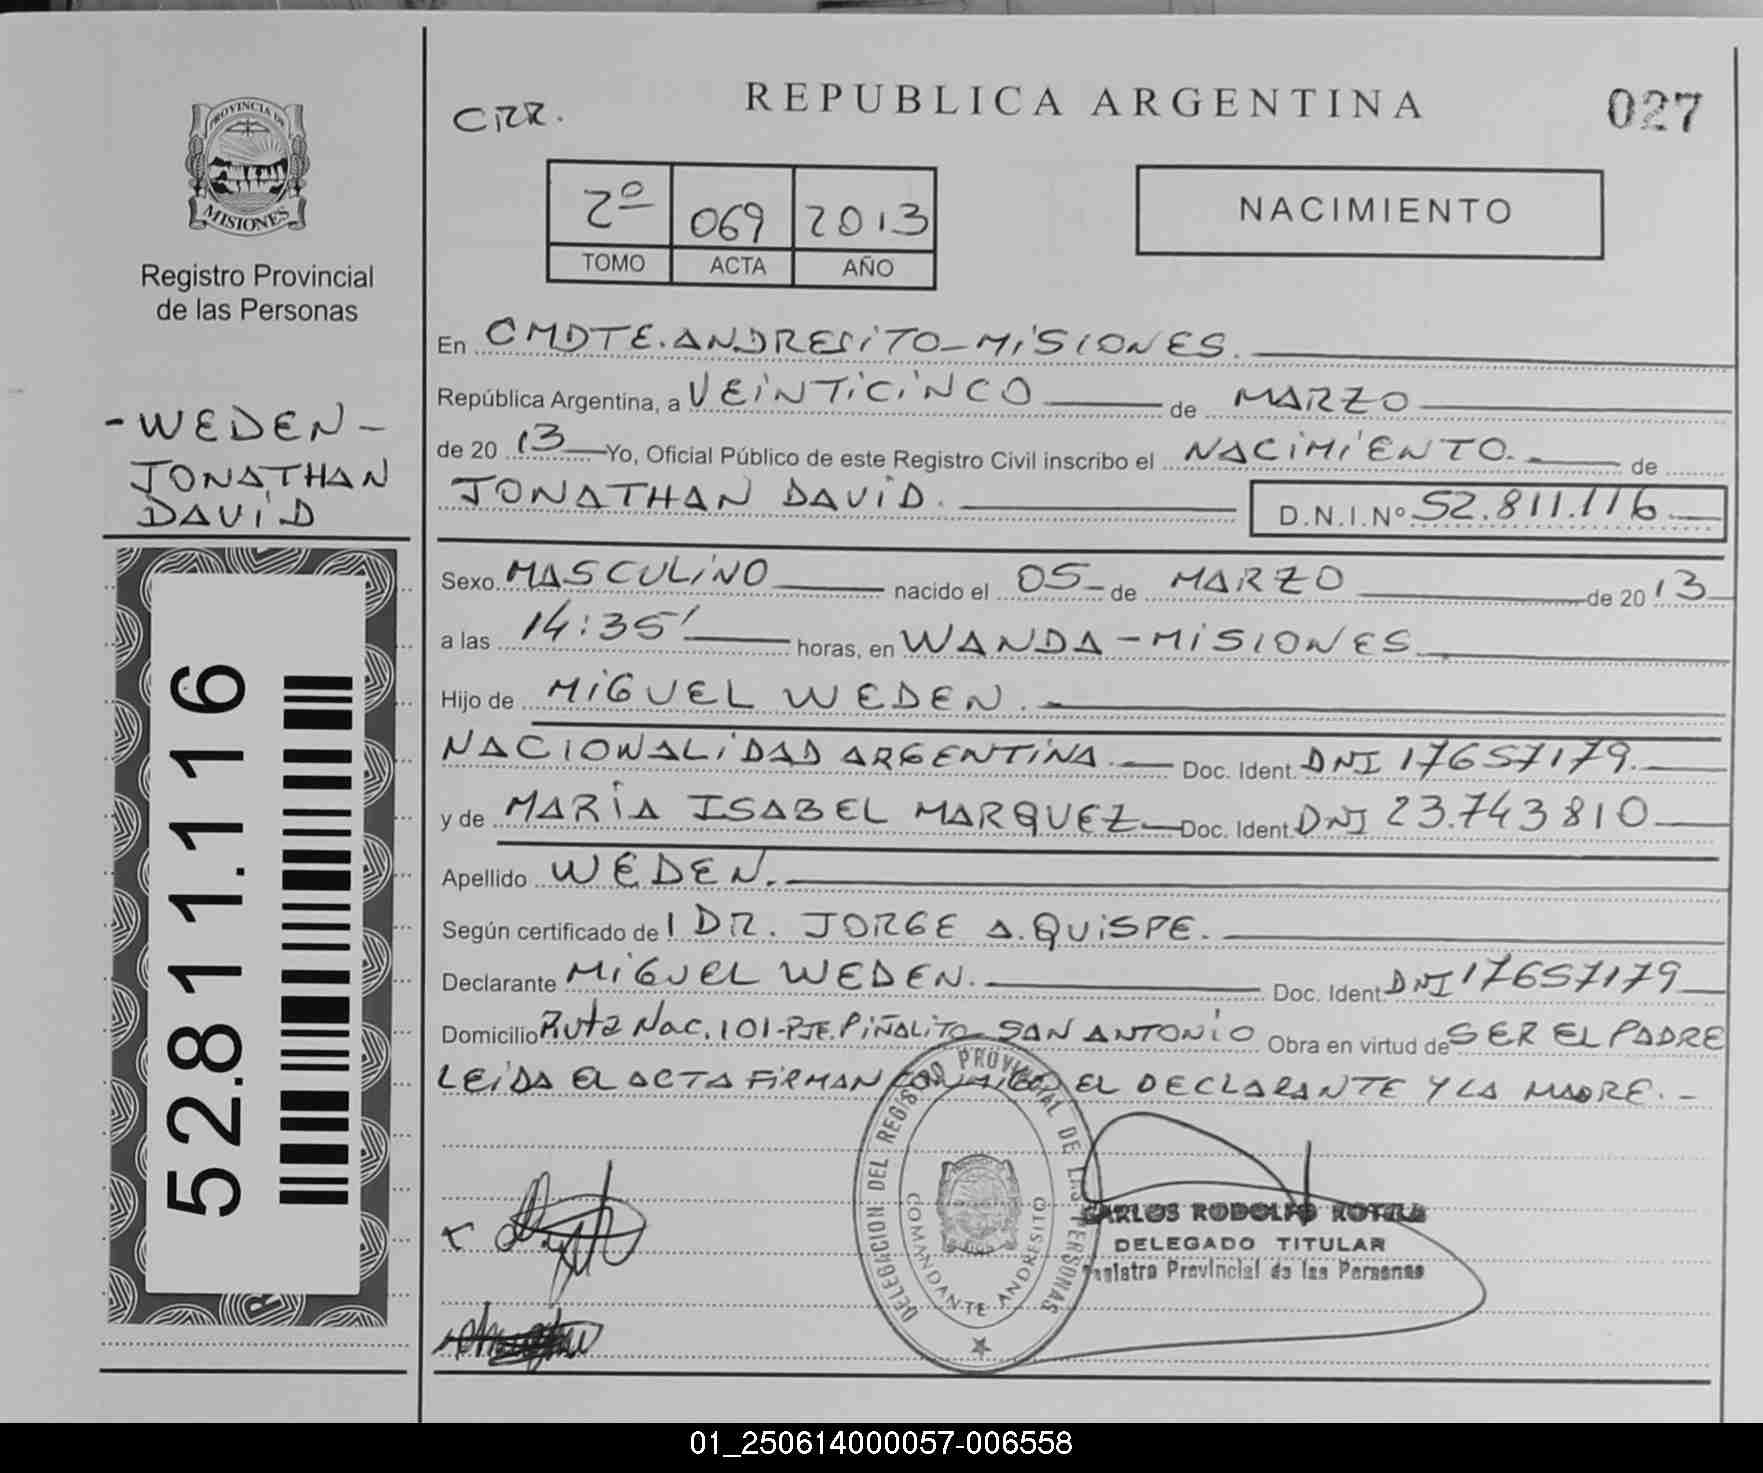 PROVINCIA DE
MISIONES
Registro Provincial
de las Personas
-WEDEN-
JONATHAN
DAVID
52.811.116
CRR.
REPUBLICA ARGENTINA
027
2º 069 2013
TOMO ACTA AÑO
NACIMIENTO
En CMDTE. ANDRESITO-MISIONES.
República Argentina, a VEINTICINCO de MARZO
de 20 13 Yo, Oficial Público de este Registro Civil inscribo el NACIMIENTO. de
JONATHAN DAVID. D.N.I.Nº 52.811.116
Sexo MASCULINO nacido el 05 de MARZO de 20 13
a las 14:35' horas, en WANDA-MISIONES
Hijo de MIGUEL WEDEN.
NACIONALIDAD ARGENTINA. Doc. Ident. DNI 17657179.
y de MARIA ISABEL MARQUEZ Doc. Ident. DNI 23.743810
Apellido WEDEN.
Según certificado del DR. JORGE A. QUISPE.
Declarante MIGUEL WEDEN. Doc. Ident. DNI 17657179
Domicilio Ruta Nac. 101-PJE. PIÑALITO SAN ANTONIO Obra en virtud de SER EL PADRE
LEIDA EL ACTA FIRMAN CONMIGO EL DECLARANTE Y LA MADRE.-
DELEGACION DEL REGISTRO PROVINCIAL DE LAS PERSONAS
COMANDANTE ANDRESITO
CARLOS RODOLFO ROTELA
DELEGADO TITULAR
Registro Provincial de las Personas
01_250614000057-006558